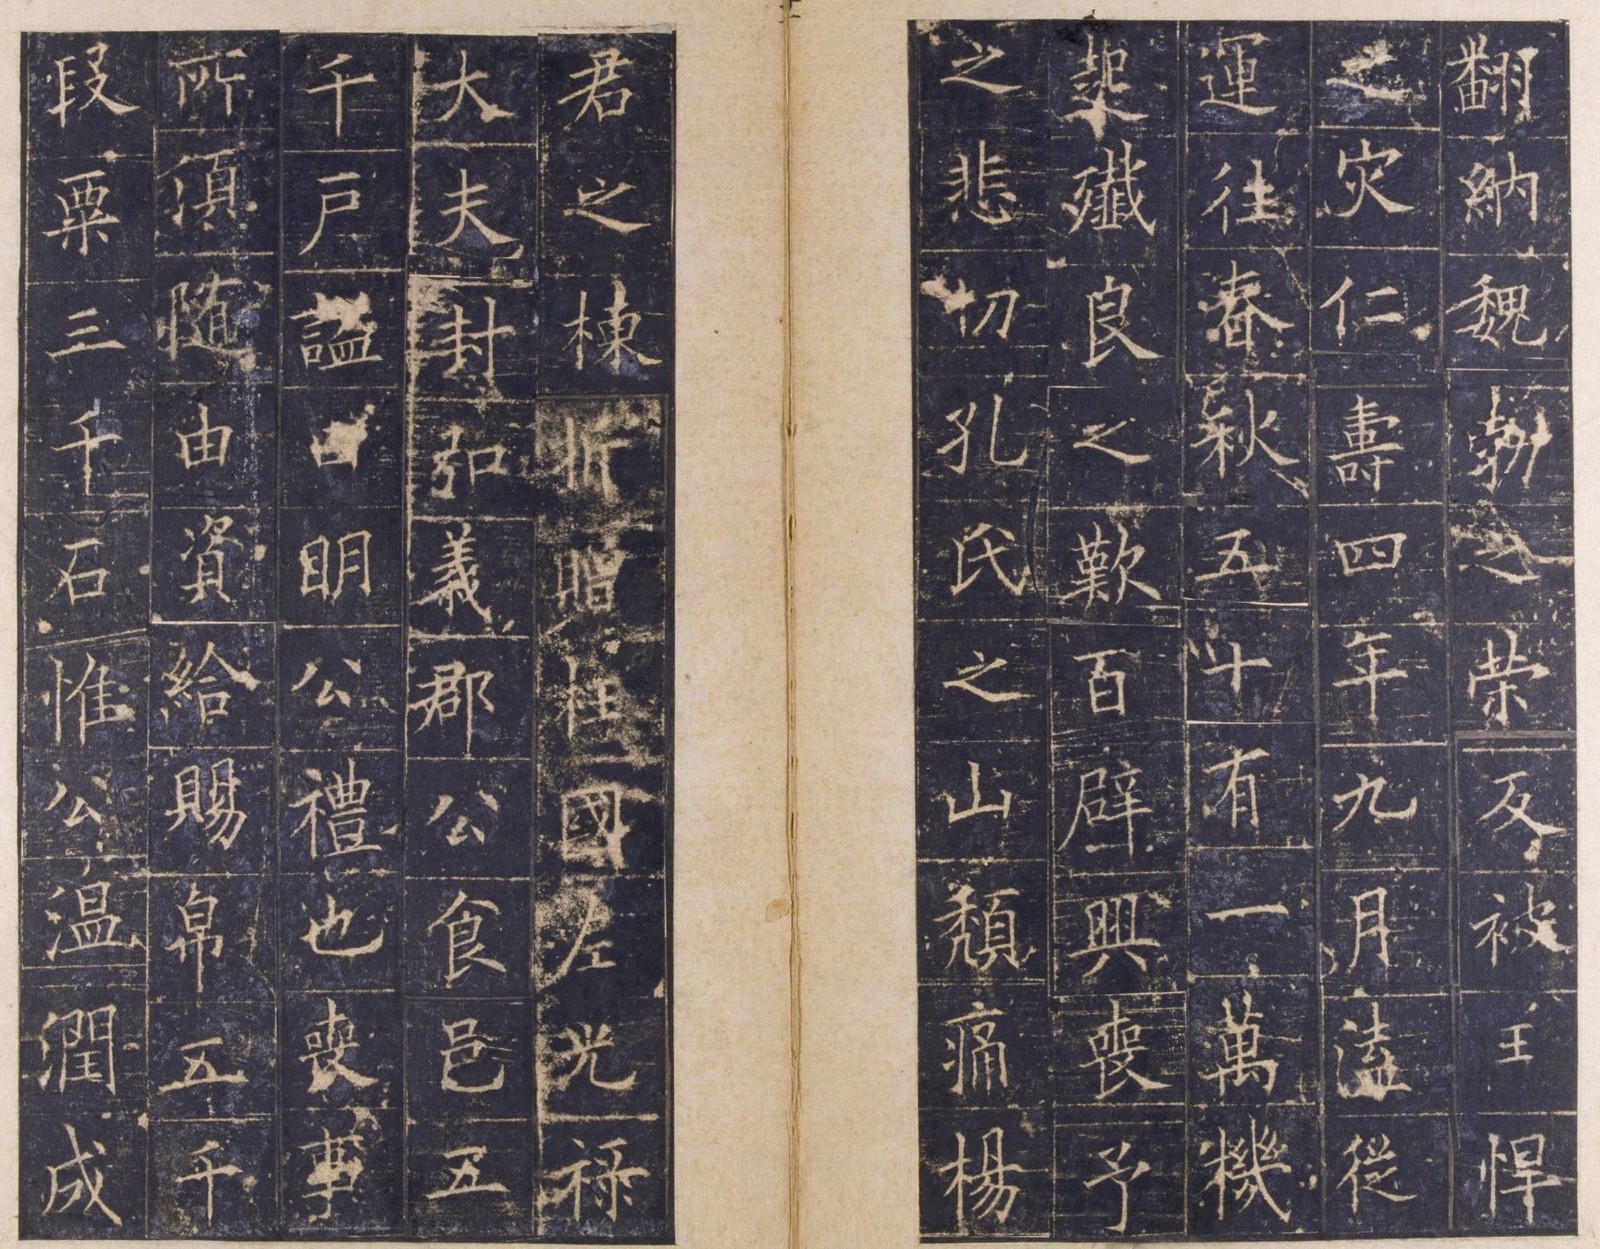 翻納魏勃之荣反被王悍
之灾仁壽四年九月溘從
運往春秋五十有一萬機
起殲良之歎百辟興喪予
之悲切孔氏之山頹痛楊
君之棟折贈柱國左光祿
大夫封弘義郡公食邑五
千戶謚曰明公禮也喪事
所湏随由資給賜帛五千
段粟三千石惟公温潤成